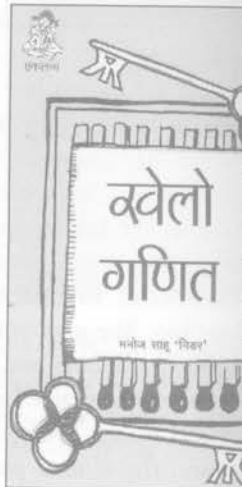 एकलव्य
खेलो
गणित
मनोज साहू 'निडर'